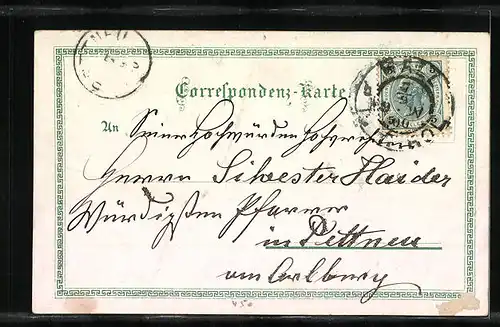 Correspondenz-Karte
An Seiner Hochwürden Hochverehr
Herrn Silvester Haider
Würdigsten Pfarrer
in Pettneu
am Arlberg